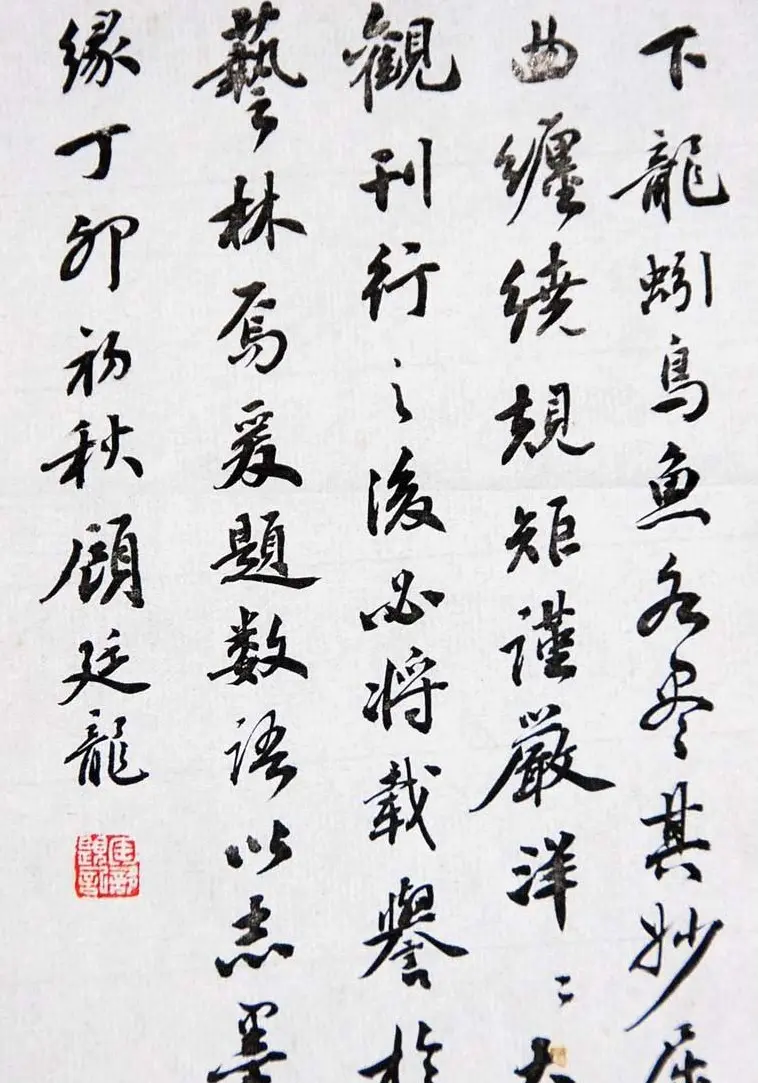 下龍蚓鳥魚各尽其妙屈
曲纏繞規矩謹嚴洋〻大
觀刊行之後必將載譽於
藝林焉爰題數語以志墨
緣丁卯初秋顧廷龍